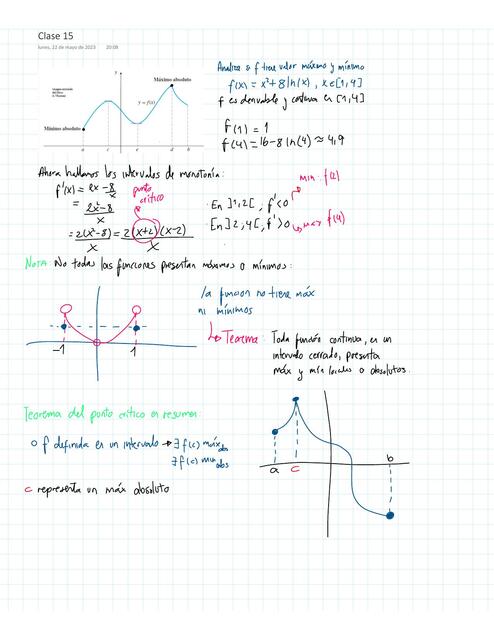 Clase 15
lunes, 22 de mayo de 2023 20:08
Máximo absoluto
y = f(x)
Mínimo absoluto
y
a c e d b
Analice si f tiene valor máximo y mínimo
f(x) = x² + 8 ln(x), x∈[1,4]
f es derivable y continua en [1,4]
f(1) = 1
f(4) = 16 - 8 ln(4) ≈ 4,9
Ahora hallamos los intervalos de monotonía:
f'(x) = 2x - 8/x
= 2x² - 8/x
= 2(x²-8)/x = 2(x+2)(x-2)/x
punto
crítico
min: f(2)
· En ]1,2[, f' < 0
· En ]2,4[, f' > 0 max f(4)
Nota: No todas las funciones presentan máximos o mínimos:
-1 1
la funcion no tiene máx
ni mínimos
Teorema: Toda función continua, en un
intervalo cerrado, presenta
máx y mín locales o absolutos.
Teorema del punto crítico en resumen:
f definida en un intervalo → ∃ f(c) máx abs
∃ f(c) min abs
c representa un máx absoluto
a c b